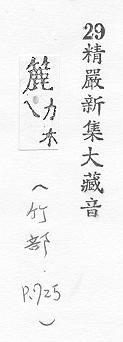 29精嚴新集大藏音
簏
力木
(竹部.
P.725)